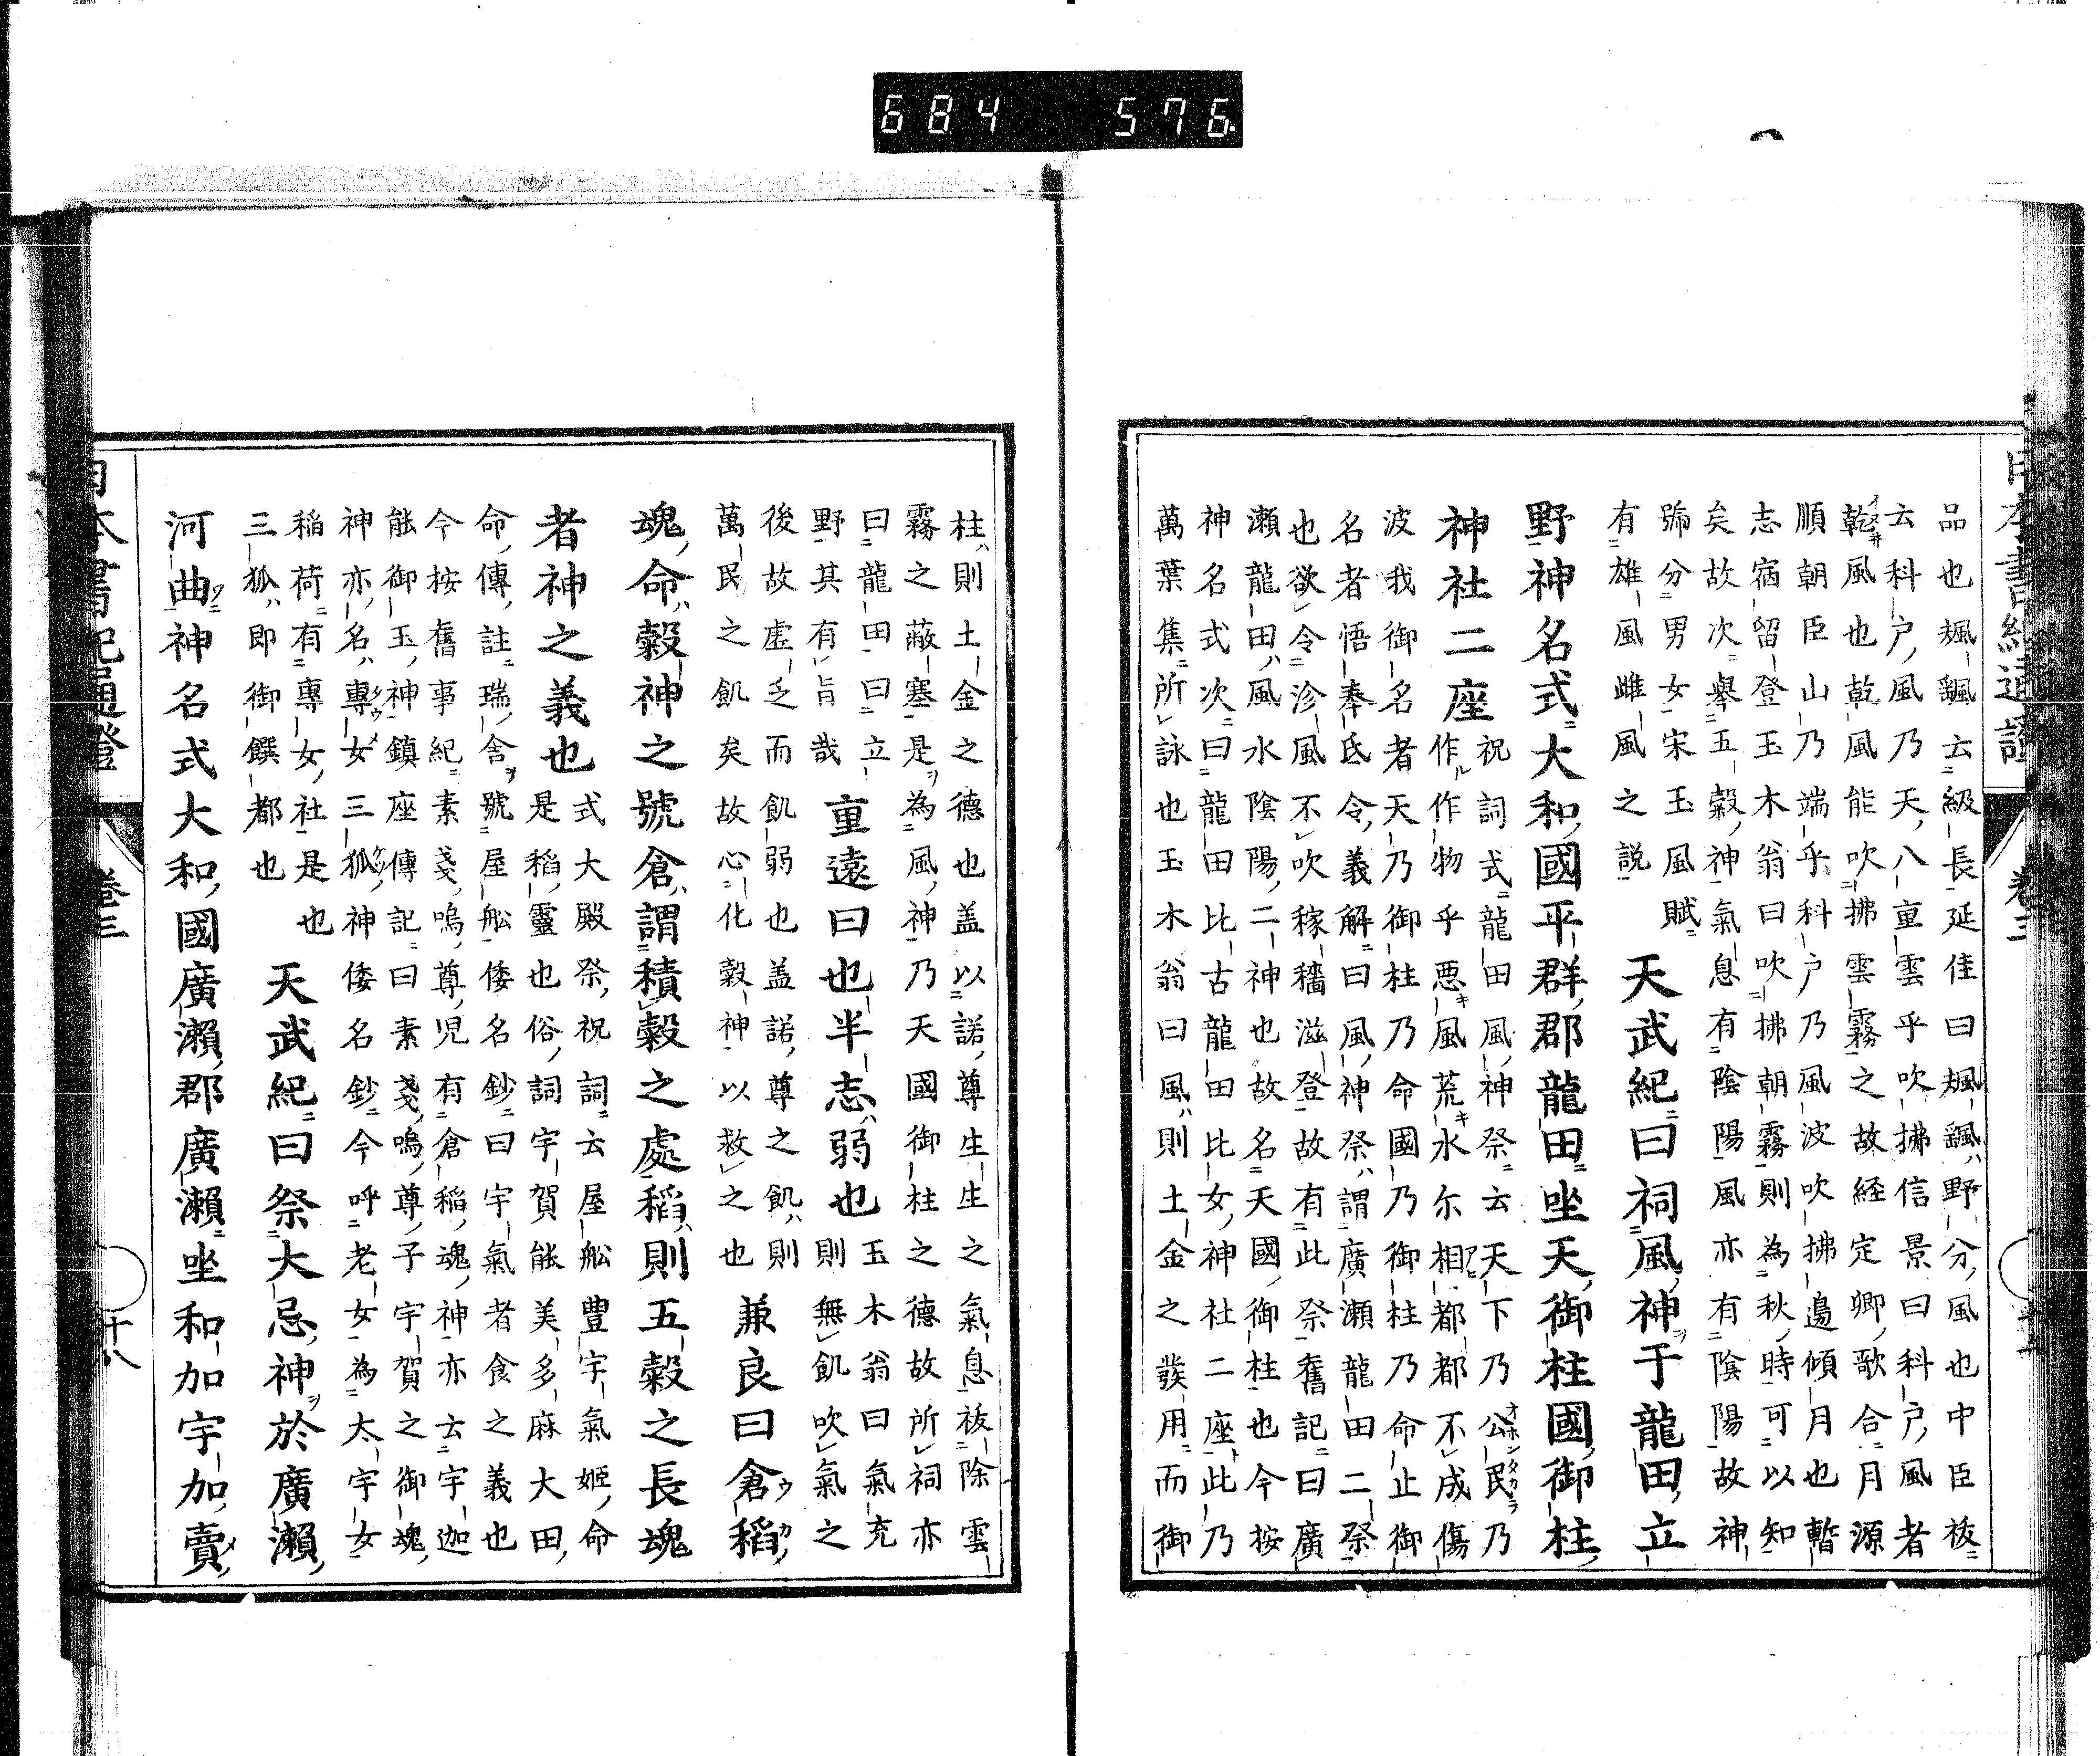 日本書紀通證
卷三
品也颿颻云級長延佳曰颿颻野分風也中臣祓
云科戶風乃天八重雲乎吹拂信景曰科戶風者
乾風也乾風能吹拂雲霧之故経定卿歌合月源
イヌ井
順朝臣山乃端乎科戶乃風波吹拂邉傾月也暫
志宿留登玉木翁曰吹拂朝霧則為秋時可以知
矣故次舉五穀神氣息有陰陽風亦有陰陽故神
號分男女宋玉風賦
有雄風雌風之説
天武紀曰祠風神于龍田立
野神名式大和國平群郡龍田坐天御柱國御柱
神社二座
祝詞式龍田風神祭云天下乃公民乃
オホンタカラ
作作物乎悪風荒水尓相都都不成傷
波我御名者天乃御柱乃命國乃御柱乃命止御
名者悟奉氐令義解曰風神祭謂廣瀬龍田二祭
也欲令沴風不吹稼穡滋登故有此祭舊記曰廣
瀬龍田風水陰陽二神也故名天國御柱也今按
神名式次曰龍田比古龍田比女神社二座此乃
萬葉集所詠也玉木翁曰風則土金之發用而御
柱則土金之德也盖以諾尊生生之氣息祓除雲
霧之蔽塞是為風神乃天國御柱之德故所祠亦
曰龍田曰立
野其有旨哉
重遠曰也半志弱也
玉木翁曰氣充
則無飢吹氣之
後故虛乏而飢弱也盖諾尊之飢則
萬民之飢矣故心化穀神以救之也
兼良曰倉稻
ウカ
魂命穀神之號倉謂積穀之處稻則五穀之長魂
者神之義也
式大殿祭祝詞云屋船豊宇氣姬命
是稻靈也俗詞宇賀能美多麻大田
命傳註瑞舍號屋船倭名鈔曰宇氣者食之義也
今按舊事紀素戔嗚尊児有倉稻魂神亦云宇迦
能御玉神鎮座傳記曰素戔嗚尊子宇賀之御魂
神亦名專女三狐神倭名鈔今呼老女為太宇女
タウメ
ケツ
稲荷有專女社是也
三狐即御饌都也
天武紀曰祭大忌神於廣瀬
河曲神名式大和國廣瀬郡廣瀬坐和加宇加賣
ワニ
メ
日本書紀通證
卷三
十八
684 576